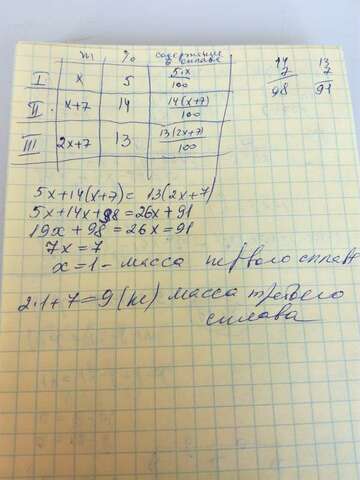 m % содержание в сплаве
I x 5 5·x/100
II x+7 14 14(x+7)/100
III 2x+7 13 13(2x+7)/100
14 13
7 7
98 91
5x+14(x+7)= 13(2x+7)
5x+14x+98=26x+91
19x+98=26x=91
7x=7
x=1- масса первого сплава
2·1+7=9(кг) масса третьего
сплава